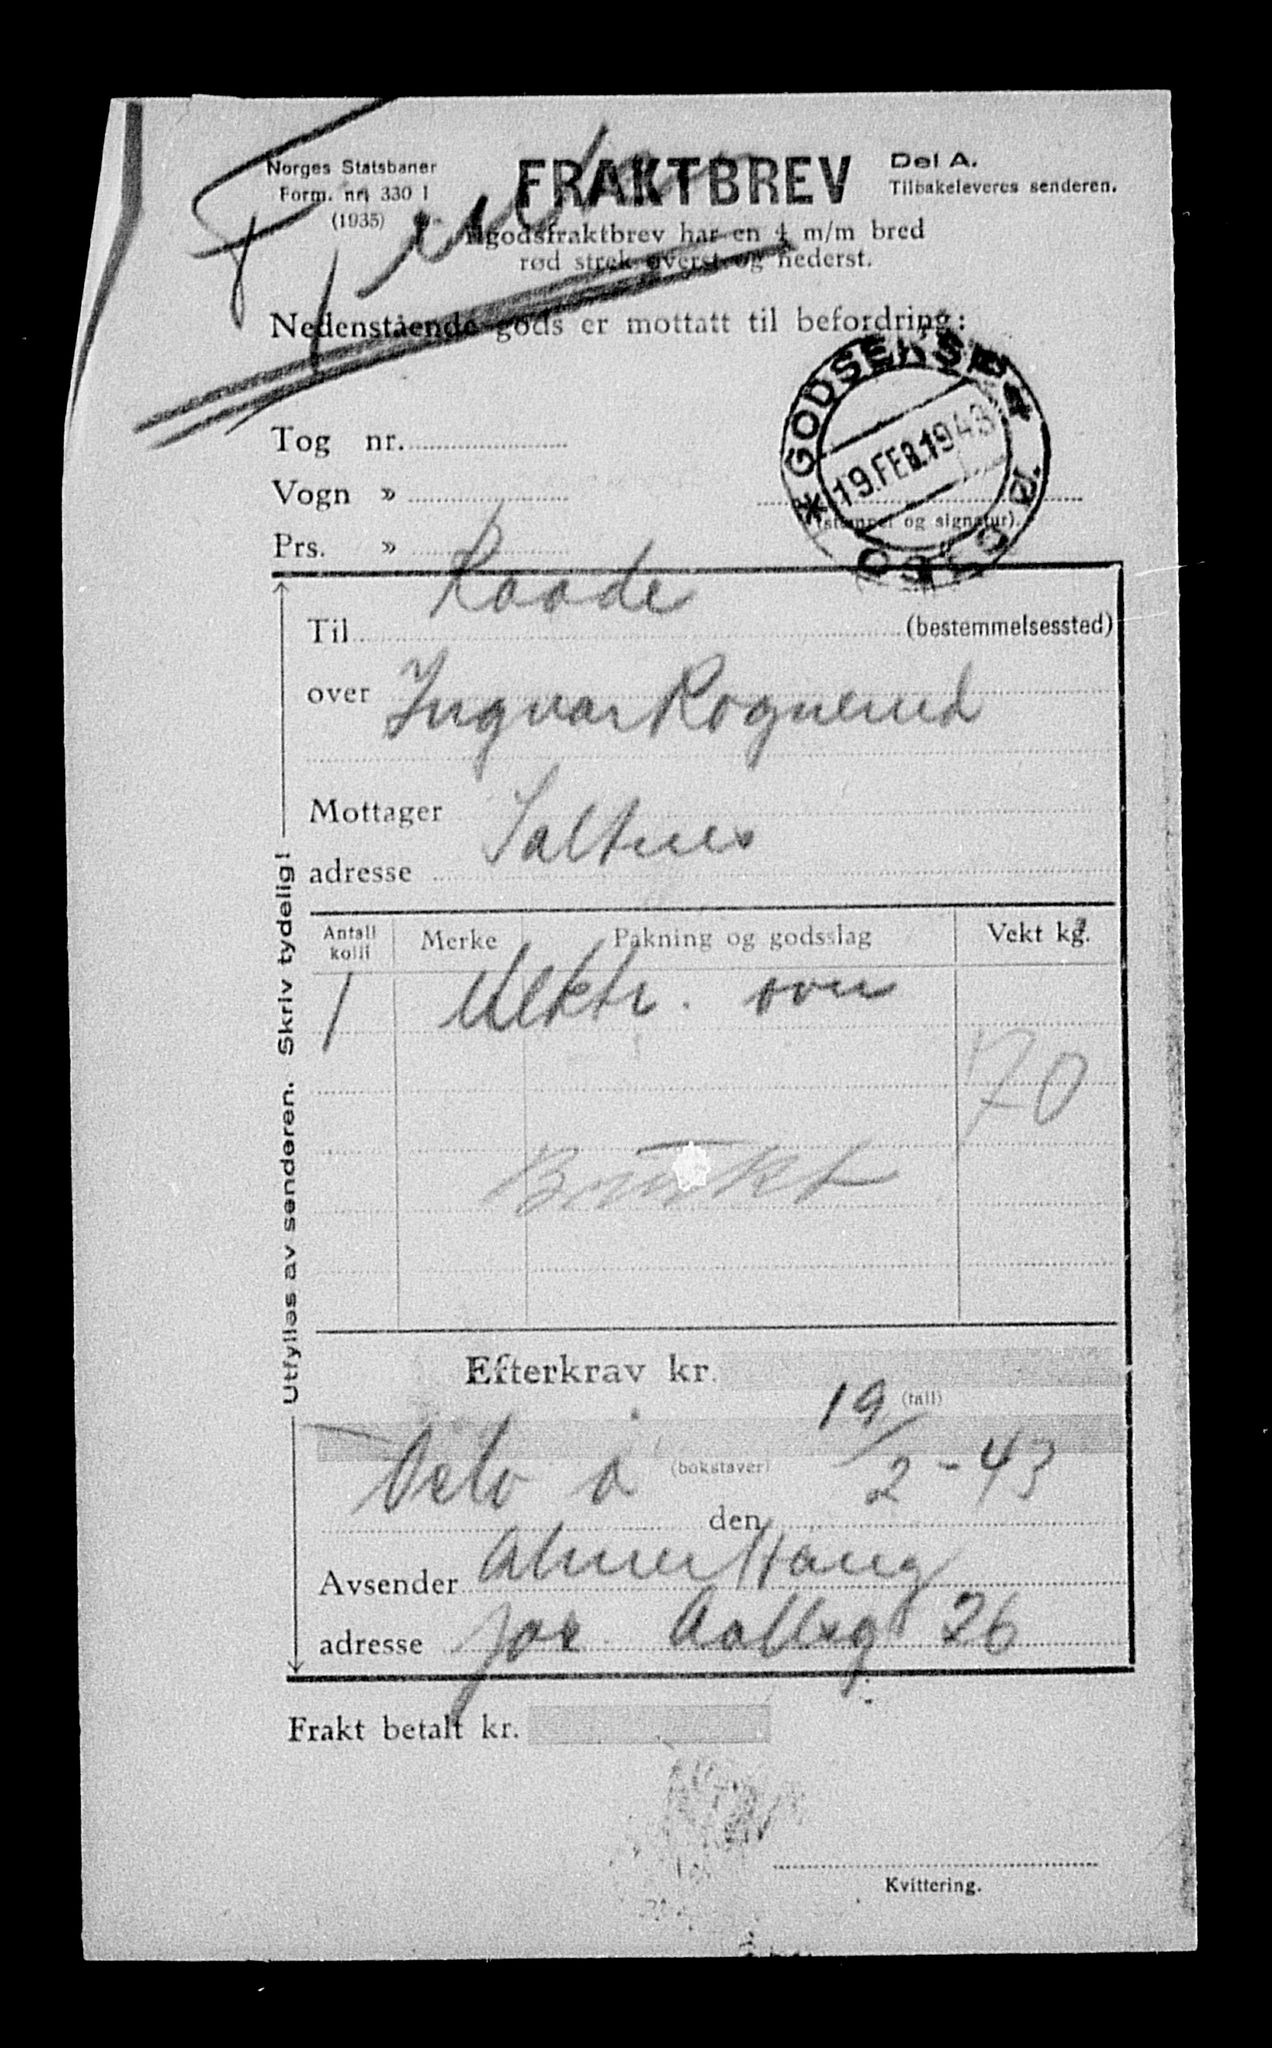 Norges Statsbaner
Form. nr. 330 1
(1935)
FRAKTBREV
Del A.
Tilbakeleveres senderen.
Ilgodsfraktbrev har en 4 m/m bred
rød strek øverst og nederst.
Nedenstående gods er mottatt til befordring:
Tog nr.
Vogn »
Prs. »
GODSEKSP
OSLO Ø.
19.FEB.1943
(stempel og signatur).
Til Raade (bestemmelsessted)
over Ingvar Rognerud
Mottager
adresse Saltnes
Antall kolli Merke Pakning og godsslag Vekt kg.
1 Elektr. ovn
70
Brukt
Utfylles av senderen. Skriv tydelig!
Efterkrav kr.
(tall)
(bokstaver)
Oslo ø den 19/2-43
Avsender Almer Haug
adresse Jac Aallsg 26
Frakt betalt kr.
Kvittering.